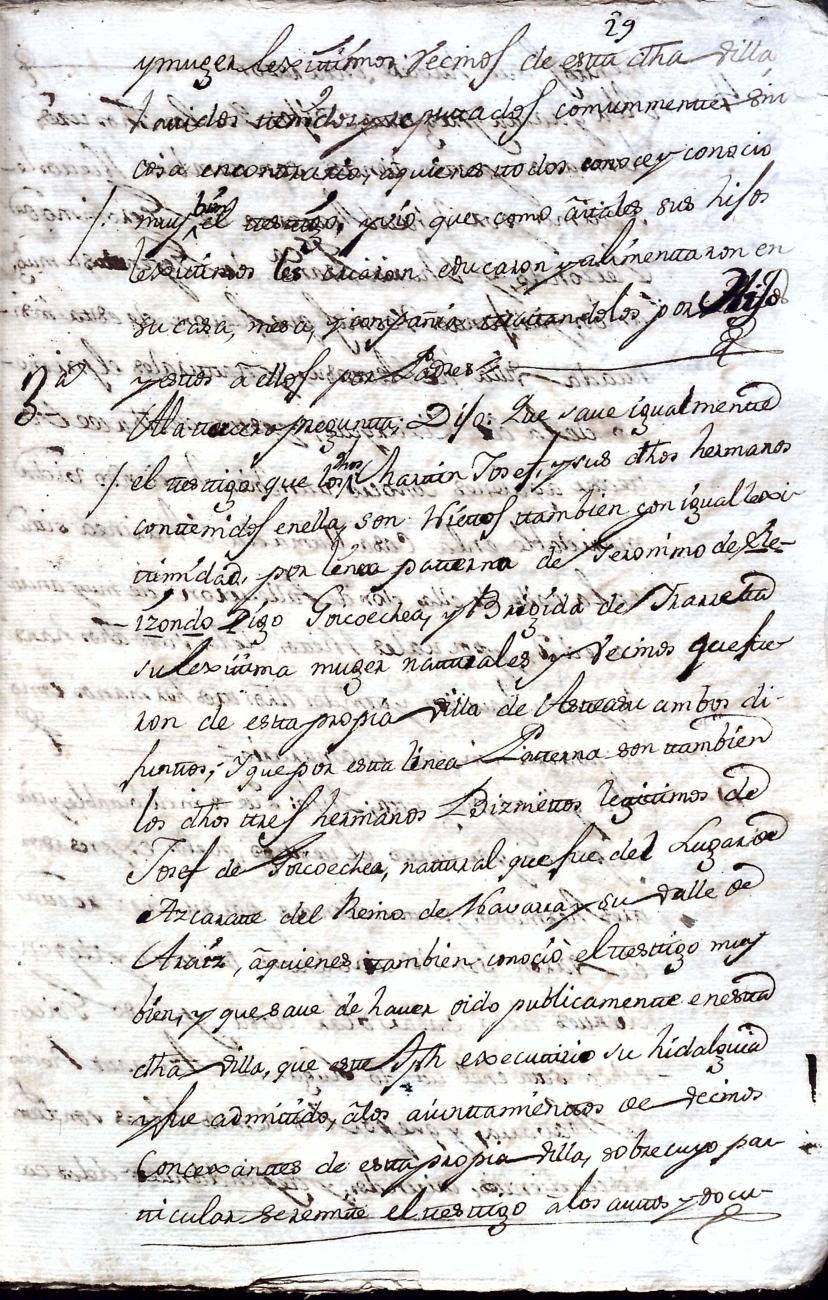 29
y muger lexitimos vecinos de esta dha villa,
havidos tenidos y reputados comunmente sin
cosa en contrario, aquienes todos conoce y conocio
muy bien el testigo, y vio que como á tales sus hijos
lexitimos les criaron educaron y alimentaron en
su casa, mesa, y compañia tratandolos por Hijos
y estos á ellos por Padres
3ª A la tercera pregunta, Dijo: Que save igualmente
el testigo, que los dhos Martin Josef, y sus dhos hermanos
contenidos en ella, son Nietos tambien con igual lexi-
timidad, por linea paterna de Jeronimo de
izondo Digo Gorcoechea, y Brigida de Tharreta
su lexitima muger naturales y vecinos que fue
ron de esta propia villa de Asteasu ambos di-
funtos; Y que por esta linea Paterna son tambien
los dhos tres hermanos Biznietos legitimos de
Josef de Gorcoechea, natural que fue del Lugar de
Azcarate del Reino de Navarra y su valle de
Araiz, aquienes tambien conoció el testigo muy
bien, y que save de haver oido publicamente en esta
dha villa, que este Jph executorio su hidalguia
y fue admitido, á los aiuntamientos de vecinos
Concexantes de esta propia villa, sobre cuyo par-
ticular se remite el testigo á los autos y docu-